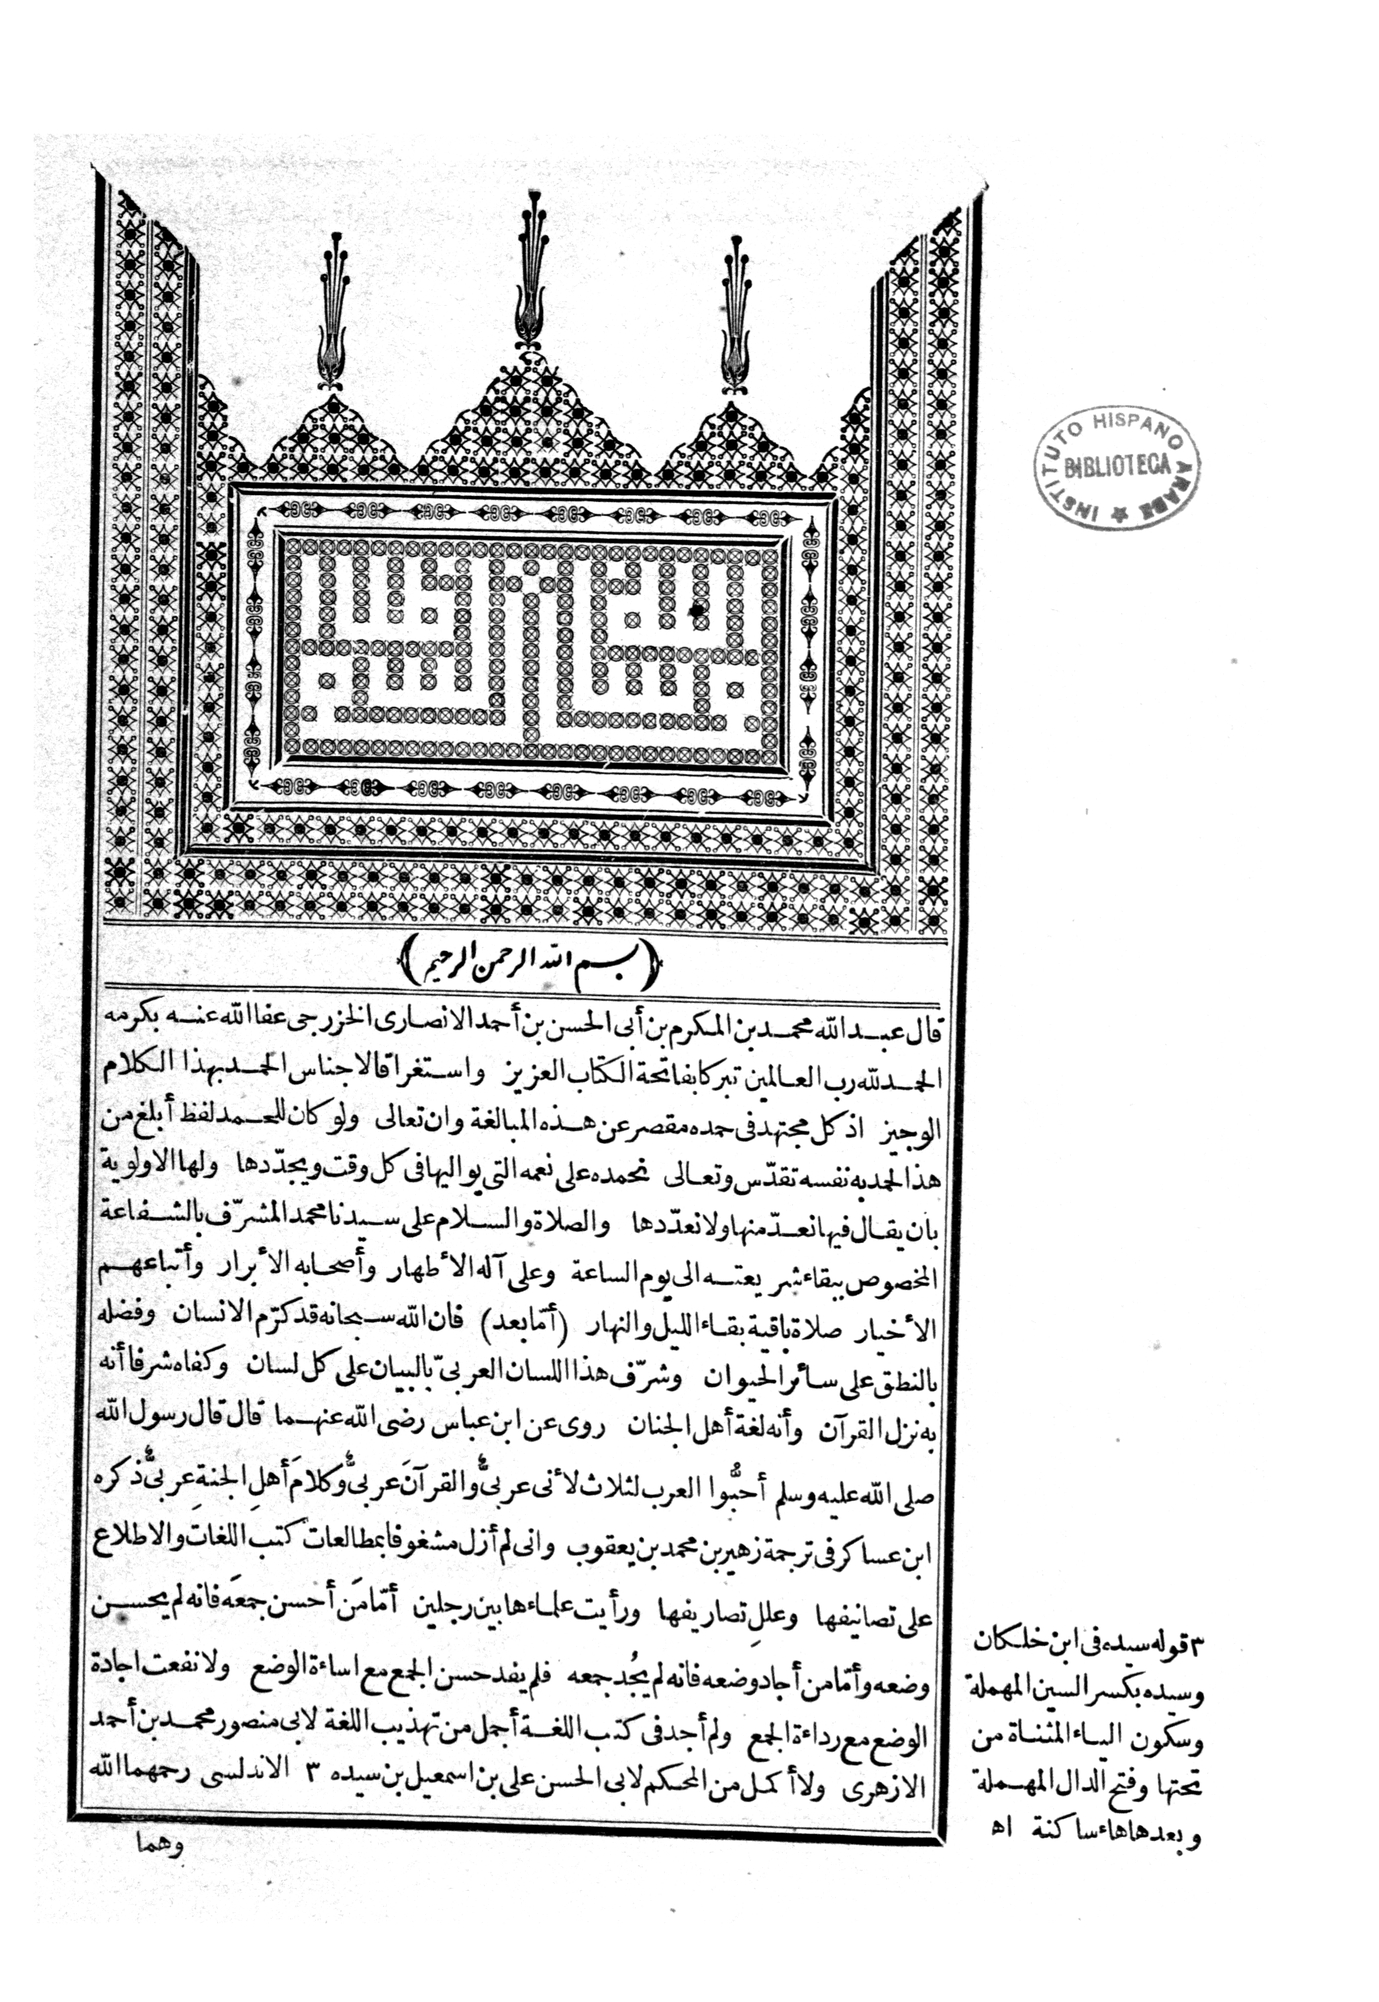 INSTITUTO HISPANO ARABE
BIBLIOTECA
﴿بسم الله الرحمن الرحيم﴾
قال عبد الله محمد بن المكرم بن أبى الحسن بن أحمد الانصارى الخزرجى عفا الله عنه بكرمه
الحمد لله رب العالمين تبركا بفاتحة الكتاب العزيز واستغراقا لاجناس الحمد بهذا الكلام
الوجيز اذ كل مجتهد فى حمده مقصر عن هذه المبالغة وان تعالى ولو كان للحمد لفظ أبلغ من
هذا لحمد به نفسه تقدّس وتعالى نحمده على نعمه التى يواليها فى كل وقت ويجدّدها ولها الاولوية
بان يقال فيها نعدّ منها ولا نعدّدها والصلاة والسلام على سيدنا محمد المشرّف بالشفاعة
المخصوص ببقاء شريعته الى يوم الساعة وعلى آله الأطهار وأصحابه الأبرار وأتباعهم
الأخيار صلاة باقية بقاء الليل والنهار (أمّا بعد) فان الله سبحانه قد كرّم الانسان وفضله
بالنطق على سائر الحيوان وشرّف هذا اللسان العربىّ بالبيان على كل لسان وكفاه شرفا أنه
به نزل القرآن وأنه لغة أهل الجنان روى عن ابن عباس رضى الله عنهما قال قال رسول الله
صلى الله عليه وسلم أحبُّوا العرب لثلاث لأنى عربىٌّ والقرآنَ عربىٌّ وكلامَ أهلِ الجنةِ عربىٌّ ذكره
ابن عساكر فى ترجمة زهير بن محمد بن يعقوب وانى لم أزل مشغوفا بمطالعات كتب اللغات والاطلاع
على تصانيفها وعللِ تصاريفها ورأيت علماءها بين رجلين أمّا مَن أحسن جمعَه فانه لم يحسن
وضعه وأمّا من أجاد وضعه فانه لم يُجد جمعه فلم يفد حسن الجمع مع اساءة الوضع ولا نفعت اجادة
الوضع مع رداءة الجمع ولم أجد فى كتب اللغة أجمل من تهذيب اللغة لابى منصور محمد بن أحمد
الازهرى ولا أكمل من المحكم لابى الحسن على بن اسمعيل بن سيده ٣ الاندلسى رحمهما الله
وهما
٣ قوله سيده فى ابن خلكان
وسيده بكسر السين المهملة
وسكون الياء المثناة من
تحتها وفتح الدال المهملة
وبعدها هاء ساكنة اه